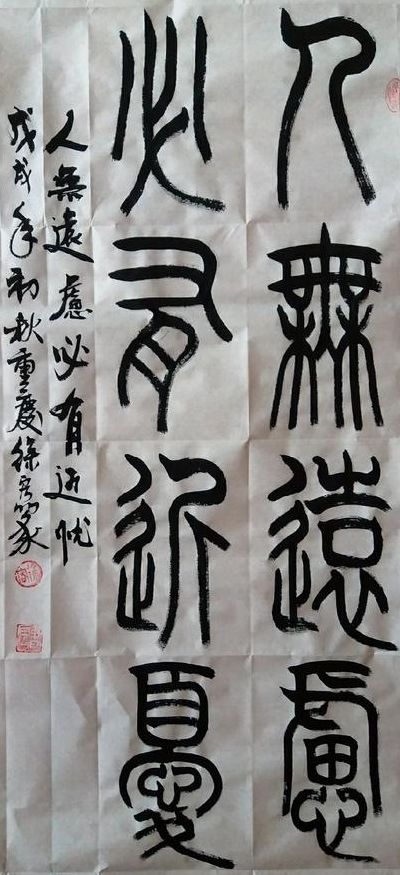 人無遠慮
必有近憂
人無遠慮必有近忧
戊戌年初秋重慶徐